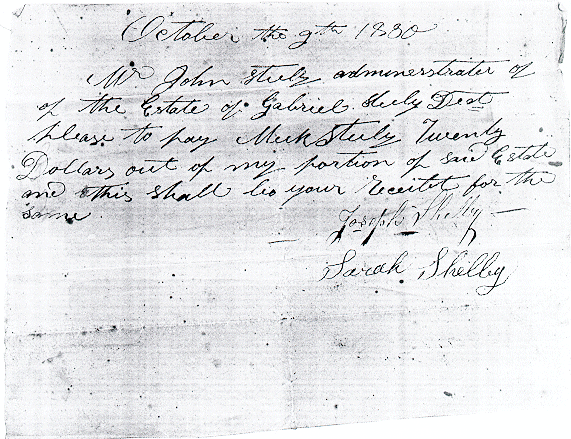 October the 9th 1830
Mr John Steely adminerstrater of
of the Estate of Gabriel Steely Dest
please to pay Meek Steely Twenty
Dollars out of my portion of said Estate
and this shall be your Receitet for the
same
Joseph Shelby
Sarah Shelby